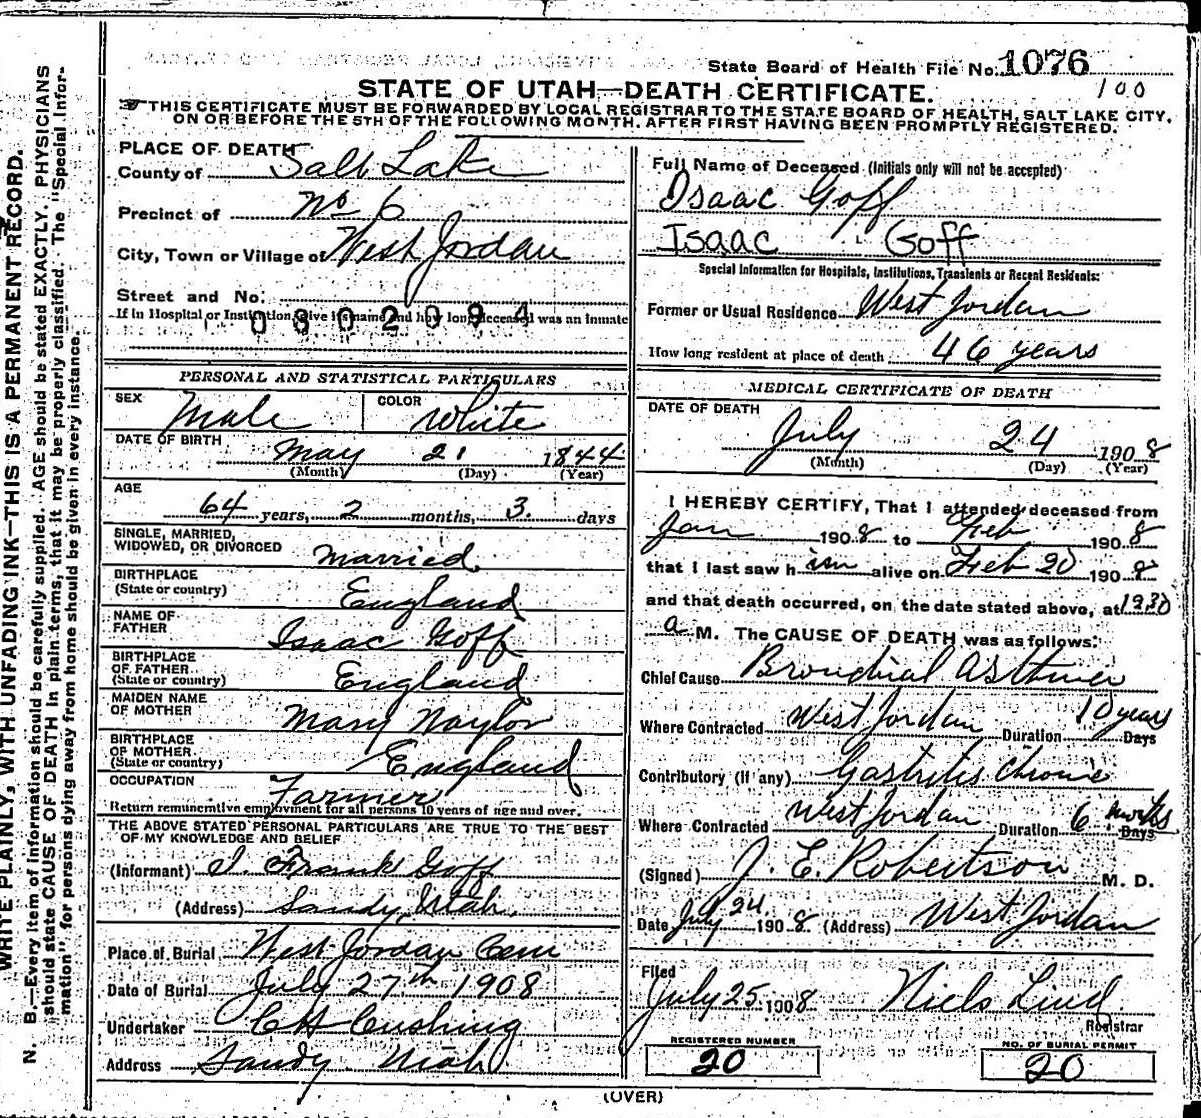 State Board of Health File No. 1076
100
STATE OF UTAH—DEATH CERTIFICATE.
THIS CERTIFICATE MUST BE FORWARDED BY LOCAL REGISTRAR TO THE STATE BOARD OF HEALTH, SALT LAKE CITY,
ON OR BEFORE THE 5TH OF THE FOLLOWING MONTH, AFTER FIRST HAVING BEEN PROMPTLY REGISTERED.
WRITE PLAINLY, WITH UNFADING INK—THIS IS A PERMANENT RECORD.
N. B.—Every item of information should be carefully supplied. AGE should be stated EXACTLY. PHYSICIANS
should state CAUSE OF DEATH in plain terms, that it may be properly classified. The "Special Infor-
mation" for persons dying away from home should be given in every instance.
PLACE OF DEATH
County of Salt Lake
Precinct of No 6
City, Town or Village of West Jordan
Street and No.
If in Hospital or Institution, give its name and how long deceased was an inmate
0802094
PERSONAL AND STATISTICAL PARTICULARS
SEX Male COLOR White
DATE OF BIRTH May 21 1844
(Month) (Day) (Year)
AGE
64 years, 2 months, 3 days
SINGLE, MARRIED,
WIDOWED, OR DIVORCED Married
BIRTHPLACE
(State or country) England
NAME OF
FATHER Isaac Goff
BIRTHPLACE
OF FATHER
(State or country) England
MAIDEN NAME
OF MOTHER Mary Naylor
BIRTHPLACE
OF MOTHER
(State or country) England
OCCUPATION Farmer
Return remunerative employment for all persons 10 years of age and over.
THE ABOVE STATED PERSONAL PARTICULARS ARE TRUE TO THE BEST
OF MY KNOWLEDGE AND BELIEF
(Informant) I. Frank Goff
(Address) Sandy, Utah.
Place of Burial West Jordan Cem
Date of Burial July 27th 1908
Undertaker CH Cushing
Address Sandy Utah
Full Name of Deceased (Initials only will not be accepted)
Isaac Goff
Isaac Goff
Special Information for Hospitals, Institutions, Transients or Recent Residents:
Former or Usual Residence West Jordan
How long resident at place of death 46 years
MEDICAL CERTIFICATE OF DEATH
DATE OF DEATH
July 24 1908
(Month) (Day) (Year)
I HEREBY CERTIFY, That I attended deceased from
Jan 1908 to Feb 1908
that I last saw him alive on Feb 20 1908
and that death occurred, on the date stated above, at 1230
a M. The CAUSE OF DEATH was as follows:
Chief Cause Bronchial Asthma
Where Contracted West Jordan Duration 10 years Days
Contributory (if any) Gastritis Chronic
Where Contracted West Jordan Duration 6 months Days
(Signed) J. E. Robertson M. D.
Date July 24 1908 (Address) West Jordan
Filed
July 25 1908 Niels Lind
Registrar
REGISTERED NUMBER
20
NO. OF BURIAL PERMIT
20
(OVER)